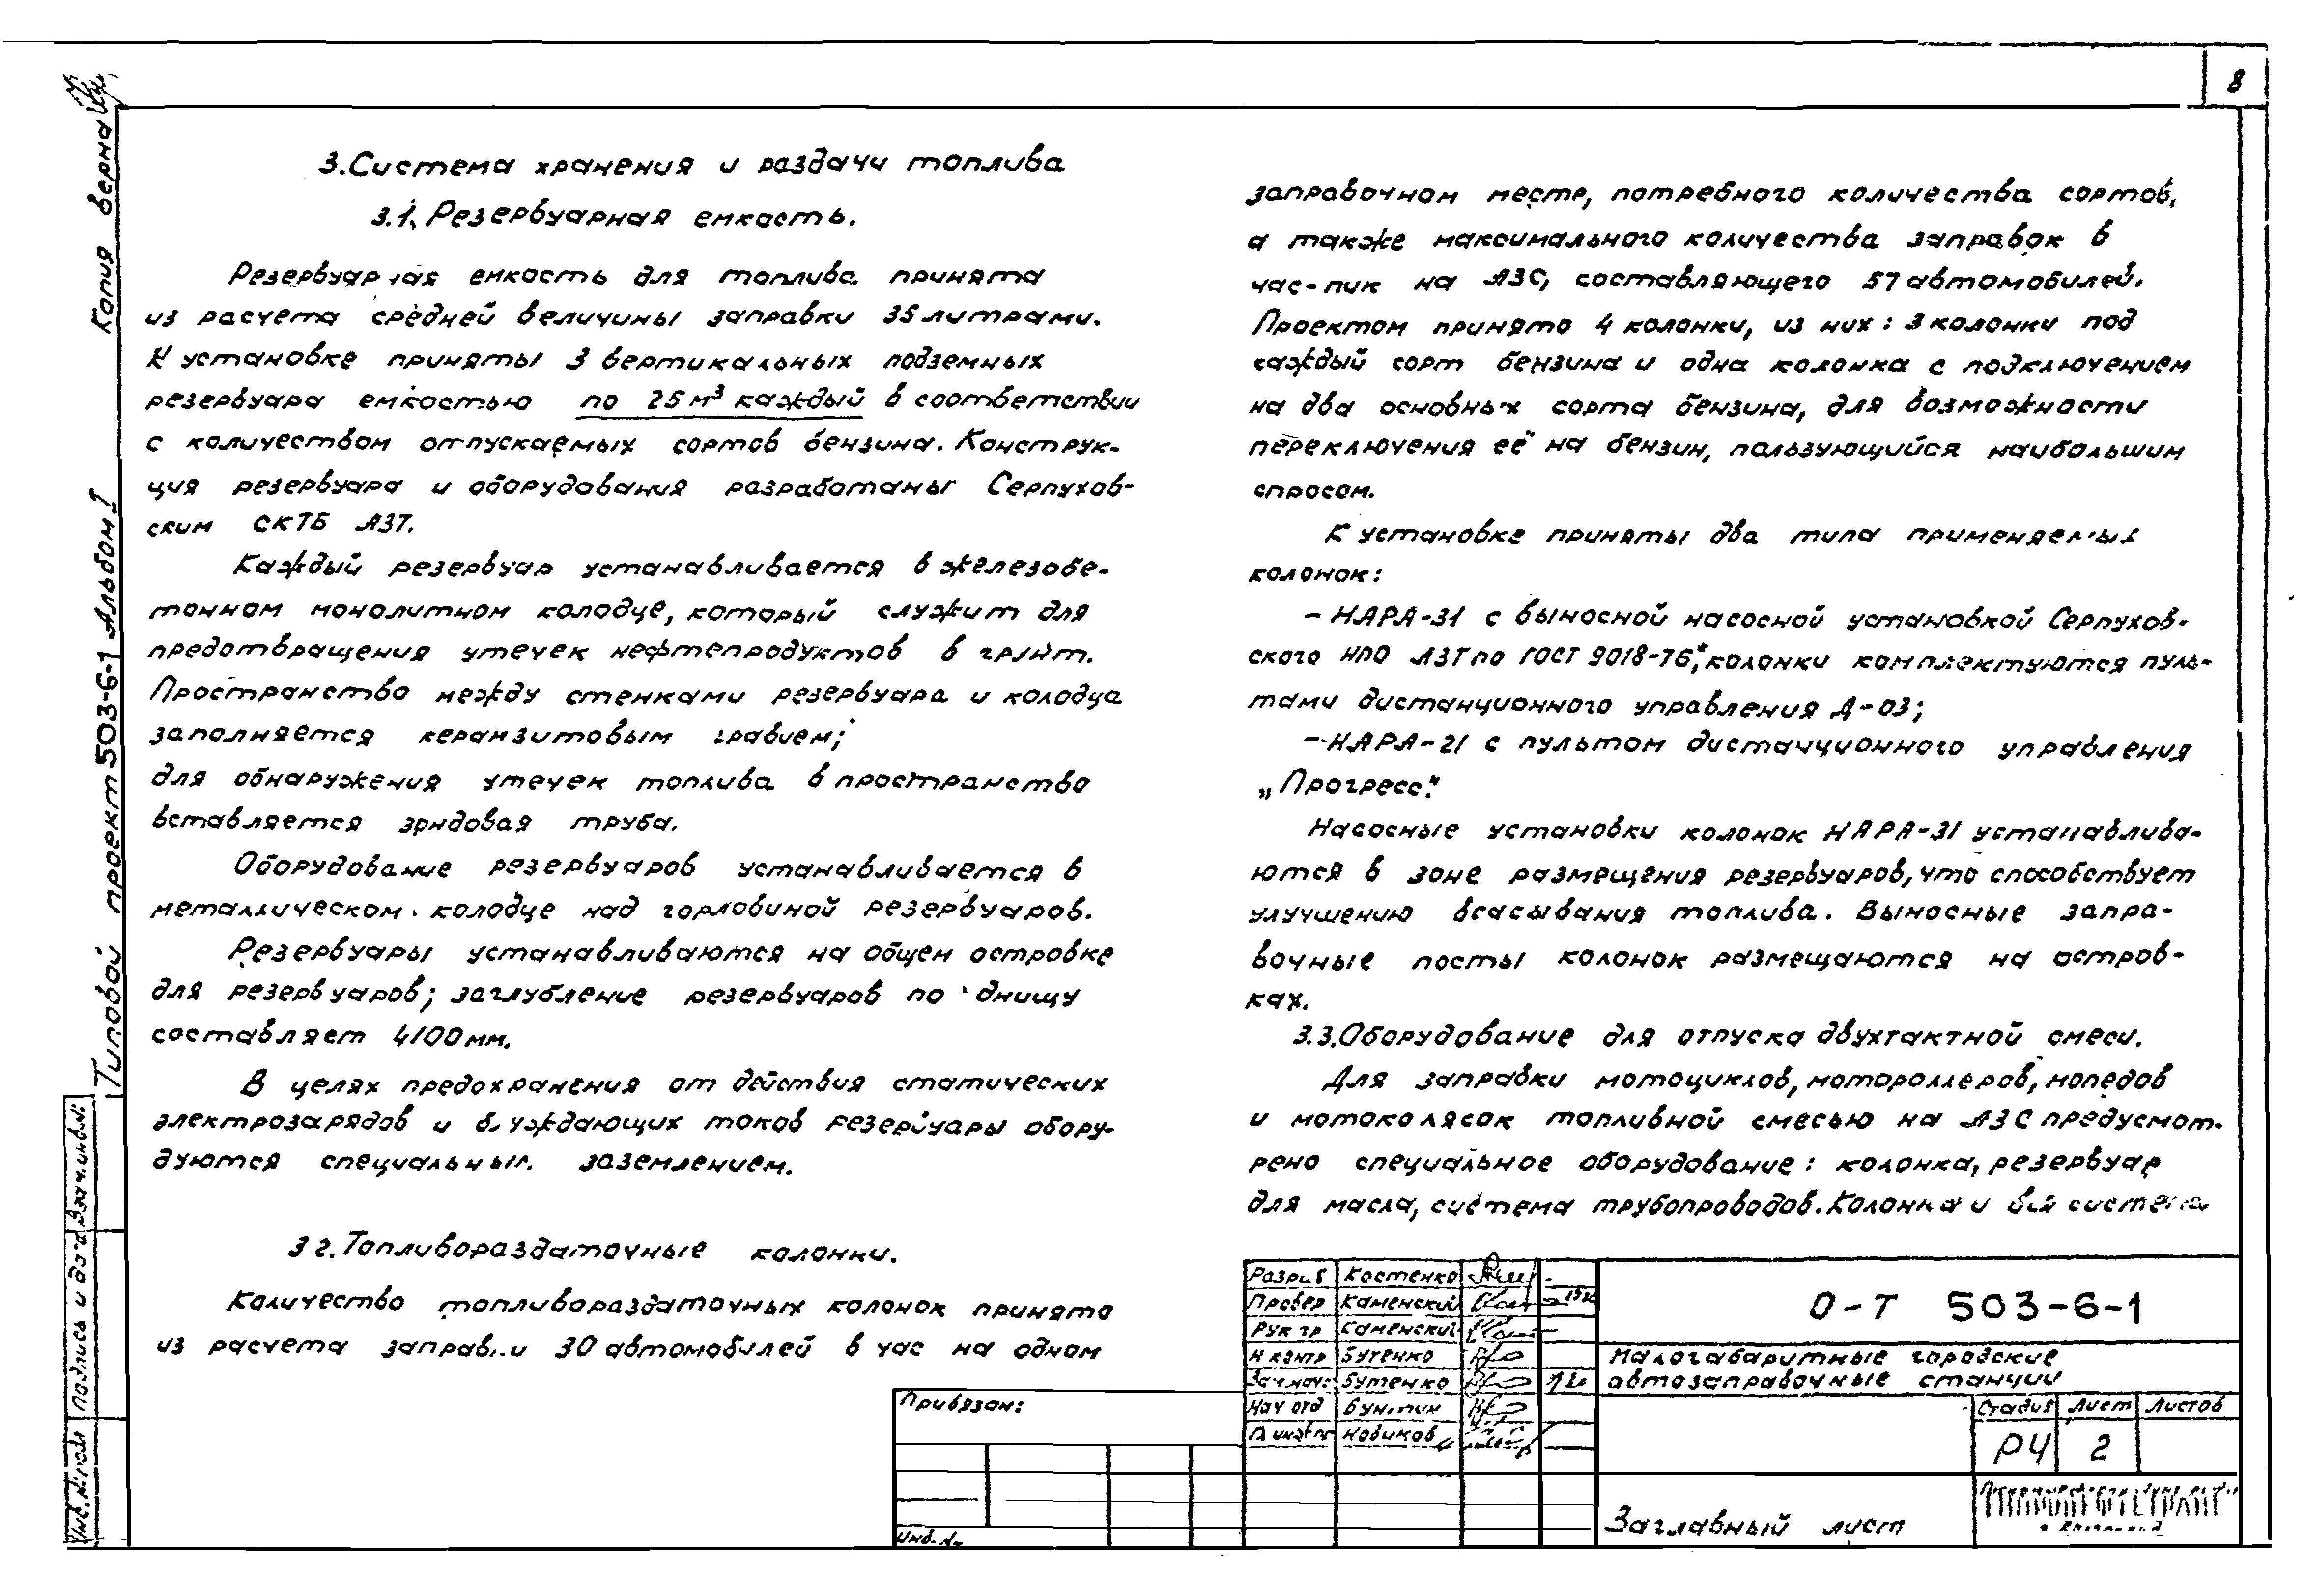 8
Копия верна
Типовой проект 503-6-1 Альбом I
3. Система хранения и раздачи топлива
3.1. Резервуарная емкость.
Резервуарная емкость для топлива принята
из расчета средней величины заправки 35 литрами.
К установке приняты 3 вертикальных подземных
резервуара емкостью по 25 м³ каждый в соответствии
с количеством отпускаемых сортов бензина. Конструк-
ция резервуара и оборудования разработаны Серпухов-
ским СКТБ АЗТ.
Каждый резервуар устанавливается в железобе-
тонном монолитном колодце, который служит для
предотвращения утечек нефтепродуктов в грунт.
Пространство между стенками резервуара и колодца
заполняется керамзитовым гравием;
для обнаружения утечек топлива в пространство
вставляется зондовая труба.
Оборудование резервуаров устанавливается в
металлическом колодце над горловиной резервуаров.
Резервуары устанавливаются на общем островке
для резервуаров; заглубление резервуаров по днищу
составляет 4100 мм.
В целях предохранения от действия статических
электрозарядов и блуждающих токов резервуары обору-
дуются специальным заземлением.
3.2. Топливораздаточные колонки.
Количество топливораздаточных колонок принято
из расчета заправки 30 автомобилей в час на одном
заправочном месте, потребного количества сортов,
а также максимального количества заправок в
час-пик на АЗС, составляющего 57 автомобилей.
Проектом принято 4 колонки, из них: 3 колонки под
каждый сорт бензина и одна колонка с подключением
на два основных сорта бензина, для возможности
переключения её на бензин, пользующийся наибольшим
спросом.
К установке приняты два типа применяемых
колонок:
- НАРА-31 с выносной насосной установкой Серпухов-
ского НПО АЗТ по ГОСТ 9018-76*, колонки комплектуются пуль-
тами дистанционного управления Д-03;
- НАРА-21 с пультом дистанционного управления
„Прогресс".
Насосные установки колонок НАРА-31 устанавлива-
ются в зоне размещения резервуаров, что способствует
улучшению всасывания топлива. Выносные запра-
вочные посты колонок размещаются на остров-
ках.
3.3. Оборудование для отпуска двухтактной смеси.
Для заправки мотоциклов, мотороллеров, мопедов
и мотоколясок топливной смесью на АЗС предусмот-
рено специальное оборудование: колонка, резервуар
для масла, система трубопроводов. Колонка и вся система
Разраб Костенко
Провер Каменский
Рук гр Каменский
Н контр Бутенко
Зам нач Бутенко
Нач отд
Гл инж пр Новиков
О-Т 503-6-1
Малогабаритные городские
автозаправочные станции
Стадия Лист Листов
РЧ 2
Заглавный лист
Привязан:
Инв. №
Взам. инв. №
Подпись и дата
Инв. № подл